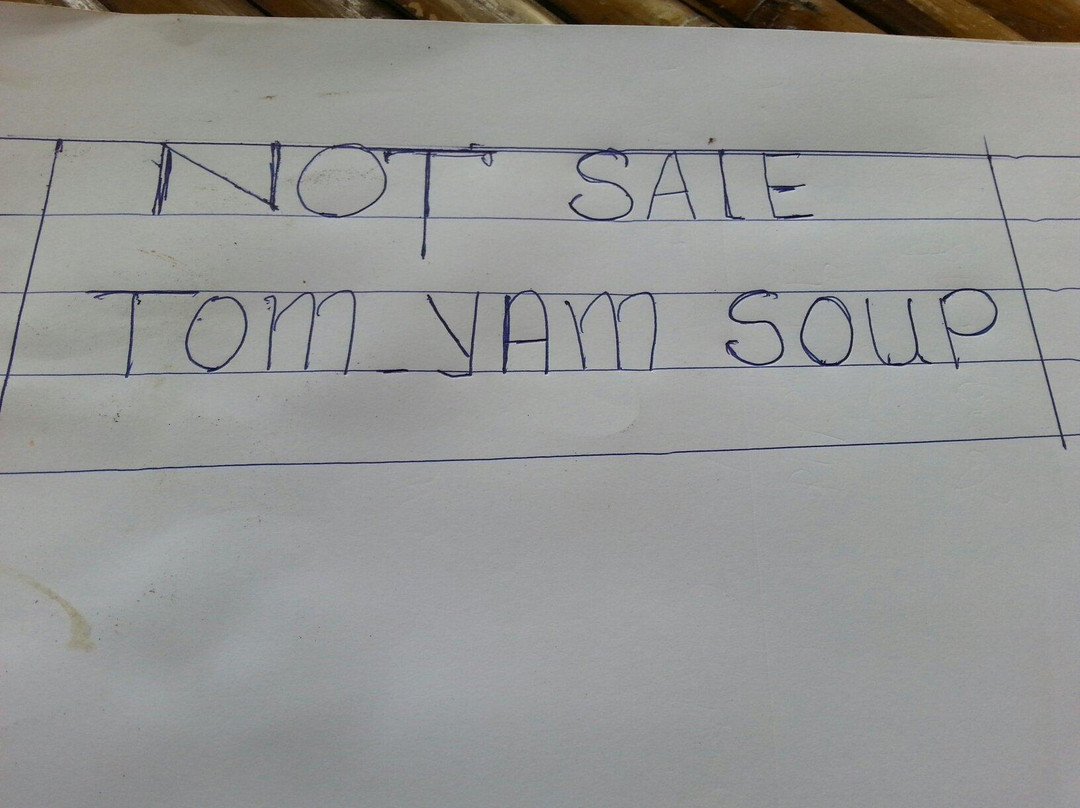 NOT SALE
TOM_YAM SOUP